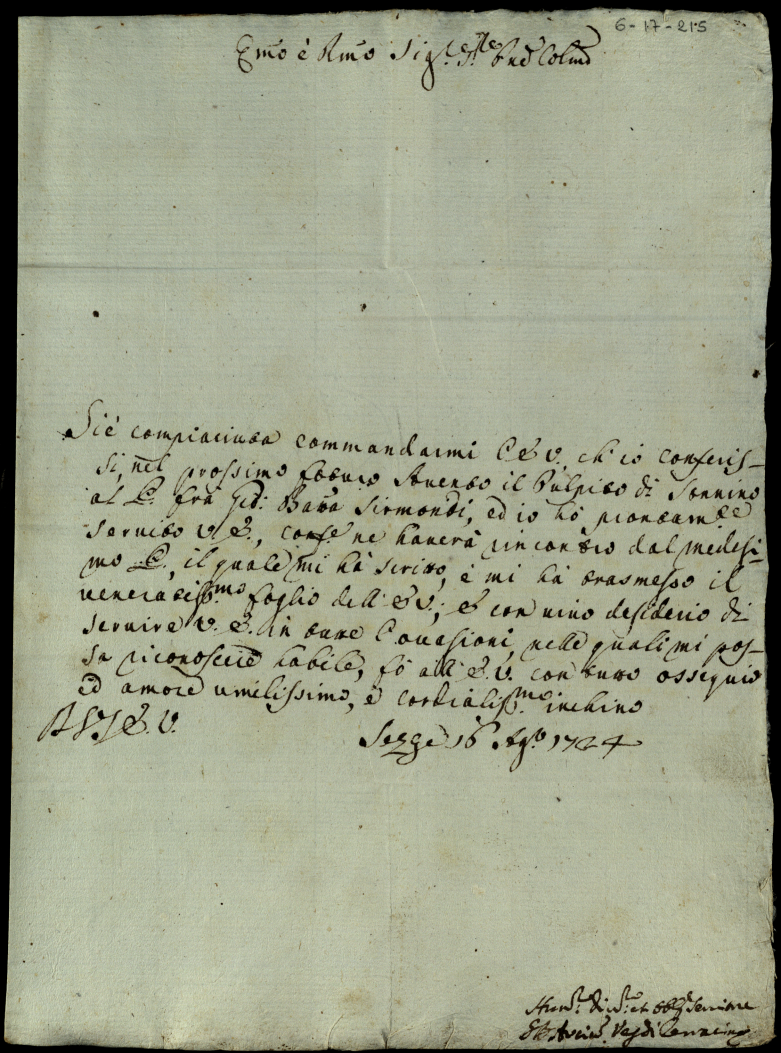 6-17-215
Emõ è Rmõ Sig.re Pne Colmõ
Si è compiaciuta commandarmi l'E.V. ch'io conferis-
si, nel prossimo futuro Avento il Pulpito di Sonnino
al P. fra Gio: Batta Sirmondi, ed io hò prontam.te
servito V.E., conf.e ne haverà rincontro dal medesi-
mo P., il quale mi hà scritto, e mi hà trasmesso il
veneratiss.mo foglio dell'E.V.; E con vivo desiderio di
servire V.E. in tutte l'occasioni, nelle quali mi pos-
sa riconoscere habile, fò all'E.V. con tutto ossequio
ed amore umilissimo, e cordialiss.mo inchino
D V.E.V.
Sezze 16 Ag.o 1724
Hum.o Di.mo et Obb. Servitore
Ves. di Terracina